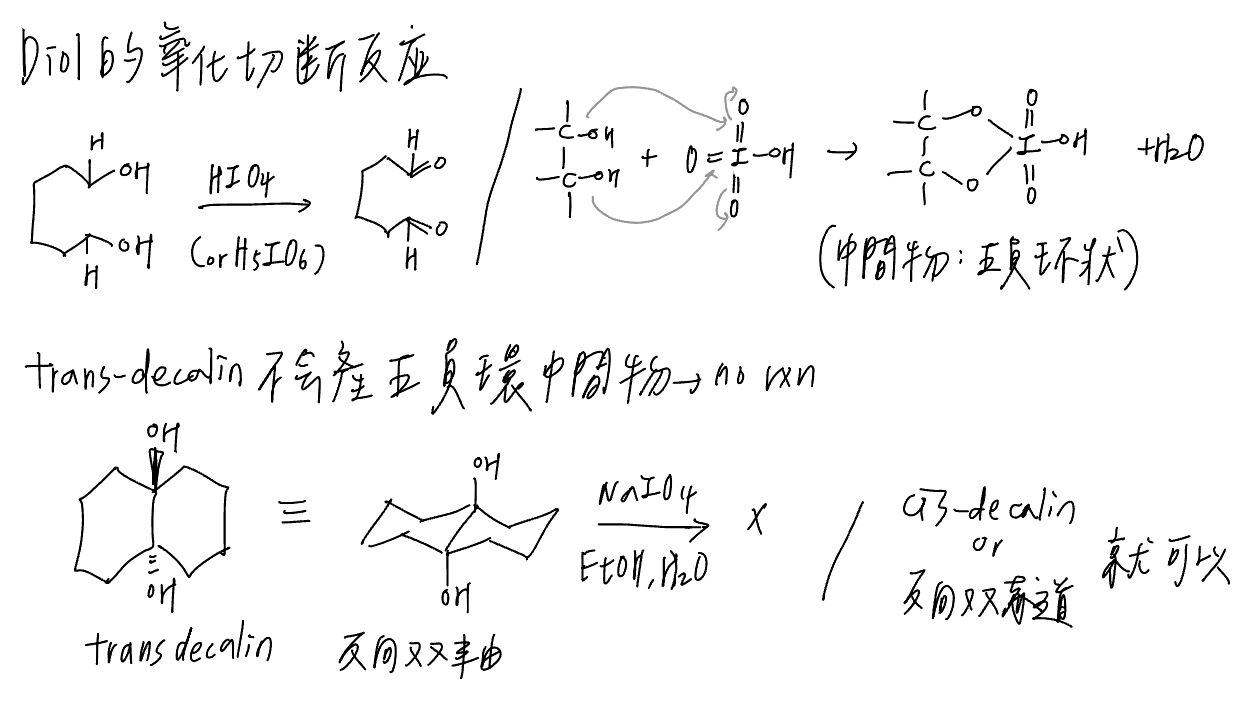 Diol的氧化切断反应
H
OH
OH
H
HIO4
(or H5IO6)
H
O
O
H
-C-OH
-C-OH
+
O
O=I-OH
O
→
-C-O
-C-O
O
I-OH
O
+H2O
(中間物:五員环状)
trans-decalin 不会產五員環中間物→no rxn
OH
OH
trans decalin
≡
OH
OH
反向双軸
NaIO4
EtOH, H2O
X
cis-decalin
or
反向双赤道
就可以